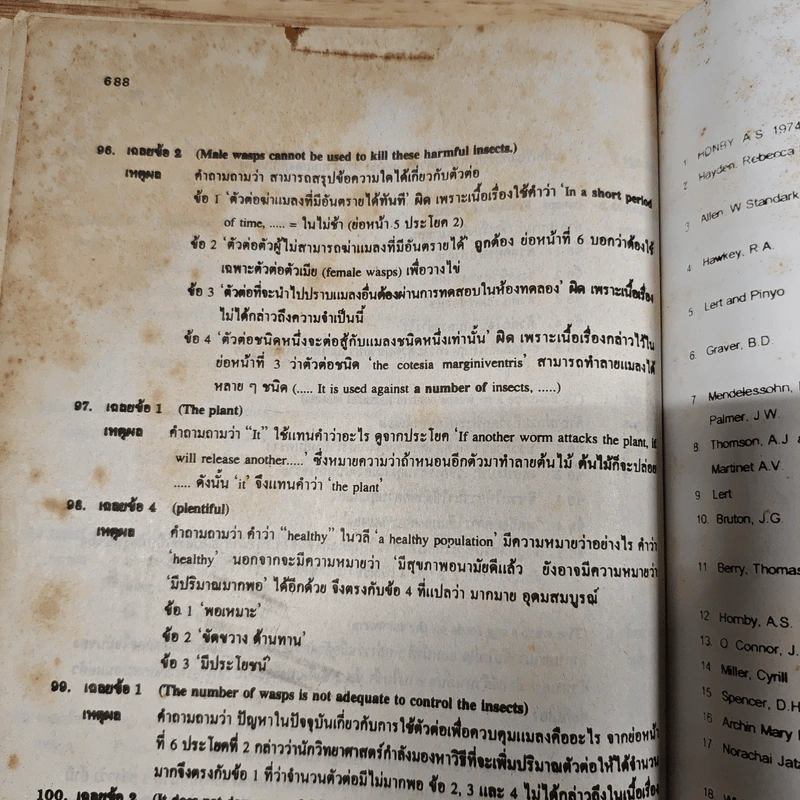 688
96. เฉลยข้อ 2 (Male wasps cannot be used to kill these harmful insects.)
เหตุผล คำถามถามว่า สามารถสรุปข้อความใดได้เกี่ยวกับตัวต่อ
ข้อ 1 ‘ตัวต่อฆ่าแมลงที่มีอันตรายได้ทันที’ ผิด เพราะเนื้อเรื่องใช้คำว่า ‘In a short period
of time, ..... = ในไม่ช้า (ย่อหน้า 5 ประโยค 2)
ข้อ 2 ‘ตัวต่อตัวผู้ไม่สามารถฆ่าแมลงที่มีอันตรายได้’ ถูกต้อง ย่อหน้าที่ 6 บอกว่าต้องใช้
เฉพาะตัวต่อตัวเมีย (female wasps) เพื่อวางไข่
ข้อ 3 ‘ตัวต่อที่จะนำไปปราบแมลงอื่นต้องผ่านการทดสอบในห้องทดลอง’ ผิด เพราะเนื้อเรื่อง
ไม่ได้กล่าวถึงความจำเป็นนี้
ข้อ 4 ‘ตัวต่อชนิดหนึ่งจะต่อสู้กับแมลงชนิดหนึ่งเท่านั้น’ ผิด เพราะเนื้อเรื่องกล่าวไว้ใน
ย่อหน้าที่ 3 ว่าตัวต่อชนิด ‘the cotesia marginiventris’ สามารถทำลายแมลงได้
หลาย ๆ ชนิด (..... It is used against a number of insects, .....)
97. เฉลยข้อ 1 (The plant)
เหตุผล คำถามถามว่า “It” ใช้แทนคำว่าอะไร ดูจากประโยค ‘If another worm attacks the plant, it
will release another.....’ ซึ่งหมายความว่าถ้าหนอนอีกตัวมาทำลายต้นไม้ ต้นไม้ก็จะปล่อย
..... ดังนั้น ‘it’ จึงแทนคำว่า ‘the plant’
98. เฉลยข้อ 4 (plentiful)
เหตุผล คำถามถามว่า คำว่า “healthy” ในวลี ‘a healthy population’ มีความหมายว่าอย่างไร คำว่า
‘healthy’ นอกจากจะมีความหมายว่า ‘มีสุขภาพอนามัยดีแล้ว ยังอาจมีความหมายว่า
‘มีปริมาณมากพอ’ ได้อีกด้วย จึงตรงกับข้อ 4 ที่แปลว่า มากมาย อุดมสมบูรณ์
ข้อ 1 ‘พอเหมาะ’
ข้อ 2 ‘ขัดขวาง ต้านทาน’
ข้อ 3 ‘มีประโยชน์’
99. เฉลยข้อ 1 (The number of wasps is not adequate to control the insects)
เหตุผล คำถามถามว่า ปัญหาในปัจจุบันเกี่ยวกับการใช้ตัวต่อเพื่อควบคุมแมลงคืออะไร จากย่อหน้า
ที่ 6 ประโยคที่ 2 กล่าวว่านักวิทยาศาสตร์กำลังมองหาวิธีที่จะเพิ่มปริมาณตัวต่อให้ได้จำนวน
มากจึงตรงกับข้อ 1 ที่ว่าจำนวนตัวต่อมีไม่มากพอ ข้อ 2, 3 และ 4 ไม่ได้กล่าวถึงในเนื้อเรื่อง
100. เฉลยข้อ 2 (It does not
1 HONBY A S 1974
2 Hayden, Rebecca
3 Allen W Standark
4 Hawkey, R A.
5 Lert and Pinyo
6. Graver, B.D.
7 Mendelessohn,
Palmer, J.W.
8. Thomson, A.J
Martinet A.V.
9 Lert
10. Bruton, J.G.
11 Berry, Thomas
12 Hornby, A.S.
13. O Connor, J.
14 Miller, Cyrill
15 Spencer, D.H
16 Archin Mary
17 Norachai Jat
18